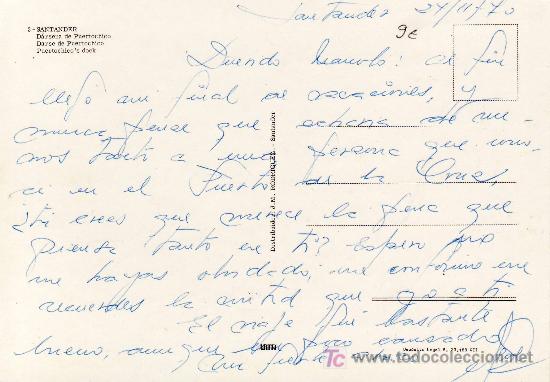 Santander 24/11/70
9€
3 - SANTANDER
Dársena de Puertochico
Darse de Puertochico
Puertochico's dock
Querido Manolo: al fin
llegó mi final de vacaciones, y
nunca pensé que echaría de me-
nos tanto a una persona que conocí
en el Puerto de la Cruz,
¿tú crees que merece la pena que
piense tanto en ti? Espero no
me hayas olvidado, me conformo me
recuerdes la mitad que yo a ti
El viaje fué bastante
bueno, aunque un poco cansado
Un fuerte
Distribuidor: J. M. RODRIGUEZ - Santander
Depósito Legal B.
todocoleccion
www.todocoleccion.net